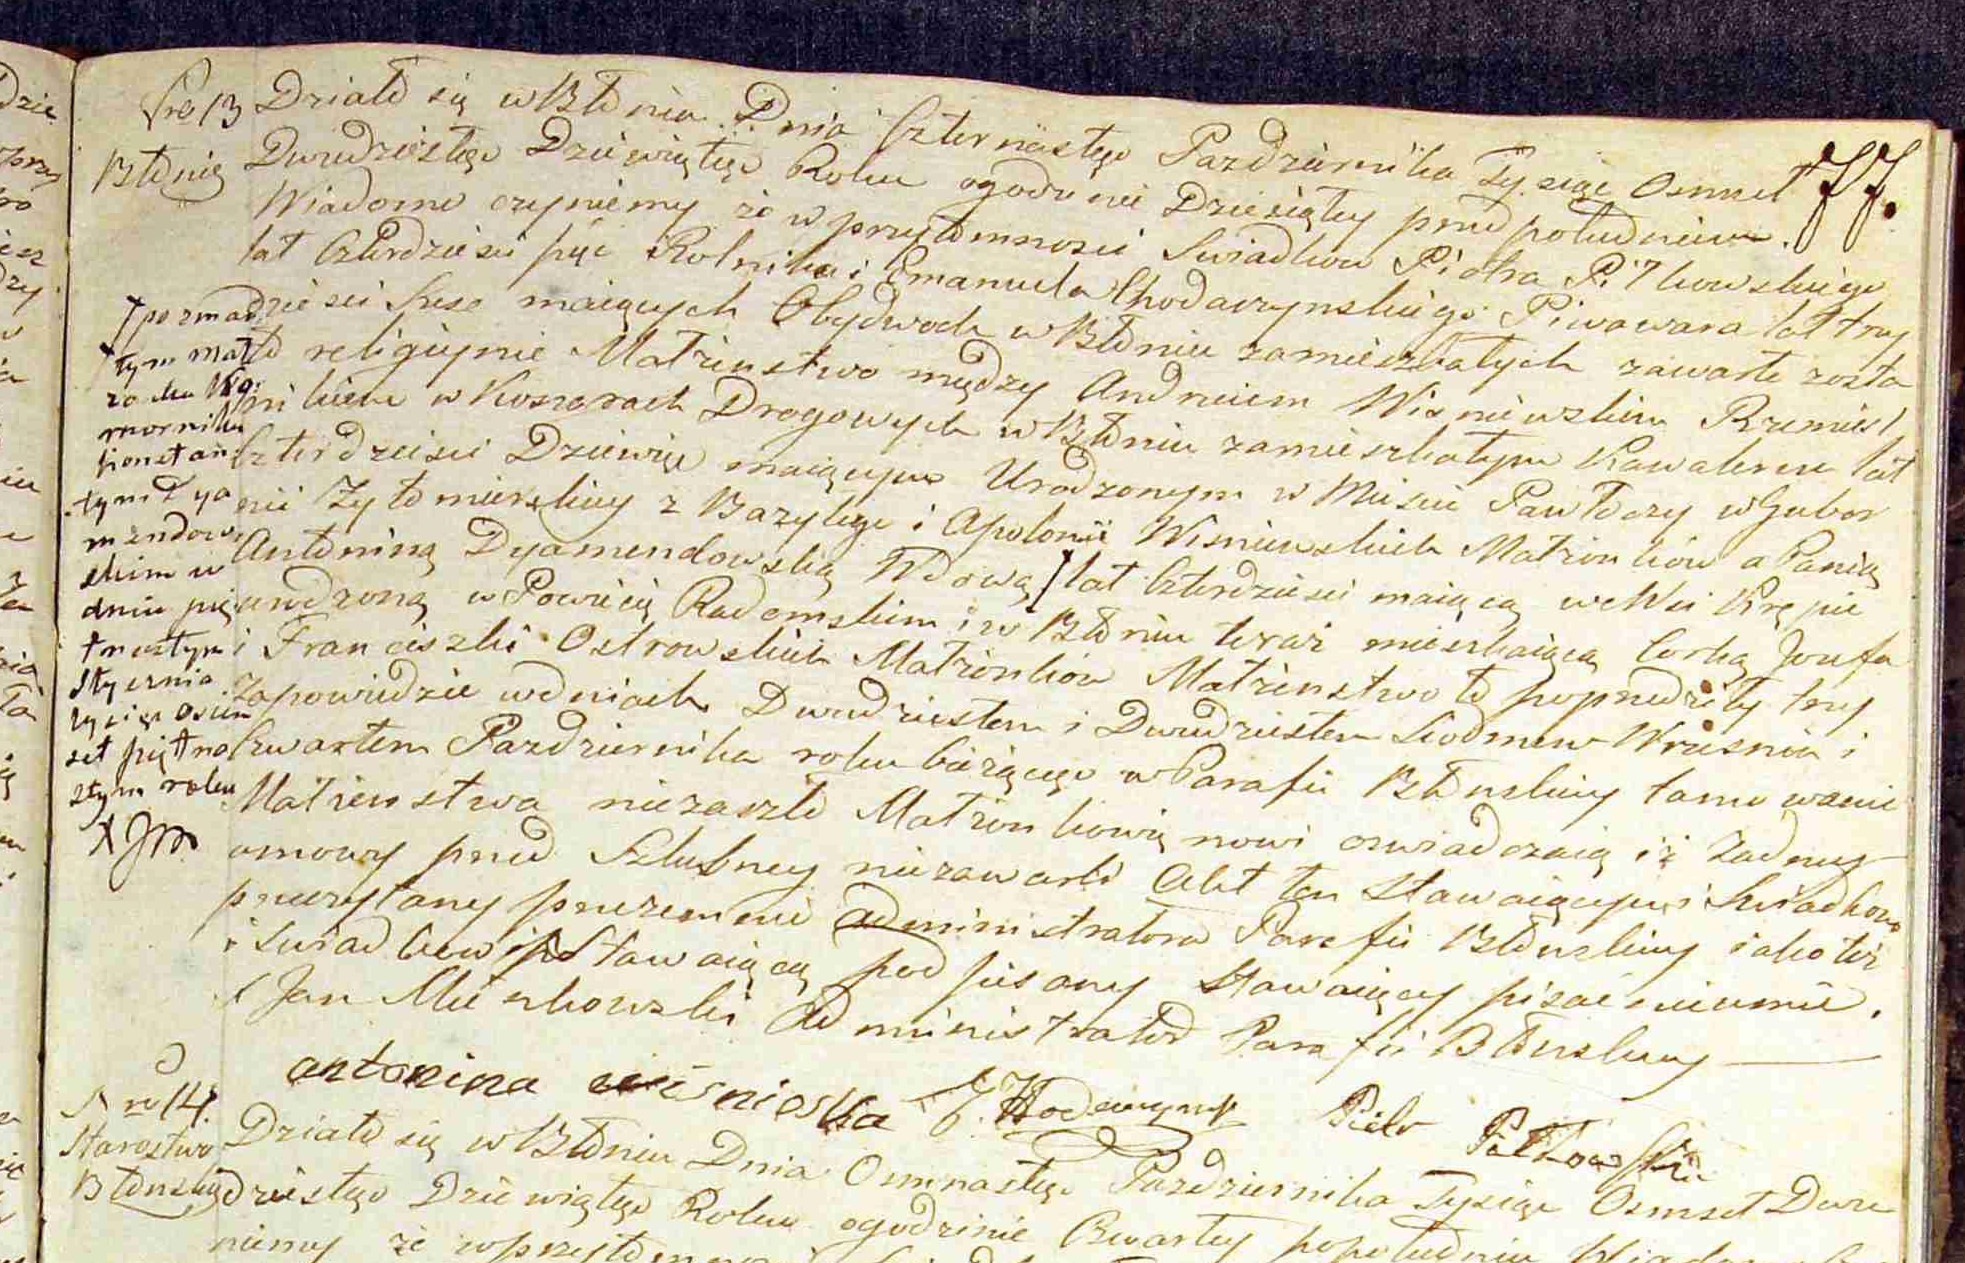 Nro 13
Błonie
Działo się w Błoniu Dnia Czternastego Pazdziernika Tysiąc Osmset
Dwudziestego Dziewiątego Roku ogodzinie Dziesiątey przed południem.
Wiadomo czyniemy że w przytomnosci Swiadkow Piotra Piłkowskiego
lat Czterdziesci pięc Rolnika i Emanuela Chodaczynskiego Piwowara lat trzy
dziesci szesc maiących Obydwoch w Błoniu zamieszkałych zawarte zosta
ło religiynie Małżenstwo między Andrzeiem Wisniewskim Rzemieśl
nikiem w Koszarach Drogowych w Błoniu zamieszkałym Kawalerem lat
Czterdziesci Dziewięc maiącym Urodzonym w Miescie Pawłoczy w Guber
nii Żytomirskiey z Bazylego i Apolonii Wisniewskich Małżonków a Panią
Antoniną Dyamendowską Wdową / lat Czterdziesci maiącą we Wsi Krępie
urodzoną w Powiecie Radomskim i w Błoniu teraz mieszkaiącą Corką Jozefa
i Franciszki Ostrowskich Małżonków Małżenstwo to poprzedziły trzy
zapowiedzie w dniach Dwudziestem i Dwudziestem Siodmem Wrzesnia i
Czwartem Pazdziernika roku bieżącego w Parafii Błonskiey tamowanie
Małżenstwa niezaszło Małżonkowie nowi oswiadczaią iż Żadney
umowy przed Szlubney niezawarli Akt ten Stawaiącym i Swiadkom
przeczytany przezemnie Administratora Parafii Błonskiey iako też
i Swiadkow i Stawaiącą pod pisany Stawaiący pisac nieumie.
X Jan Mieszkowski Administrator Parafii Błonskiey
antonina wisnioska
E. Hodaczynsk
Piotr Piłkowski
77.
† po zmar
łym mał
żonku Ko
morniku
Konstan
tym Dya
mendow
skim w
dniu pię
tnastym
Stycznia
tysiąc osm
set piętna
stym roku
X JM
Nro 14.
Starostwo
Błonskie
Działo się w Błoniu Dnia Osmnastego Pazdziernika Tysiąc Osmset Dwu
dziestego Dziewiątego Roku ogodzinie Czwartey popołudniu
niemy że w